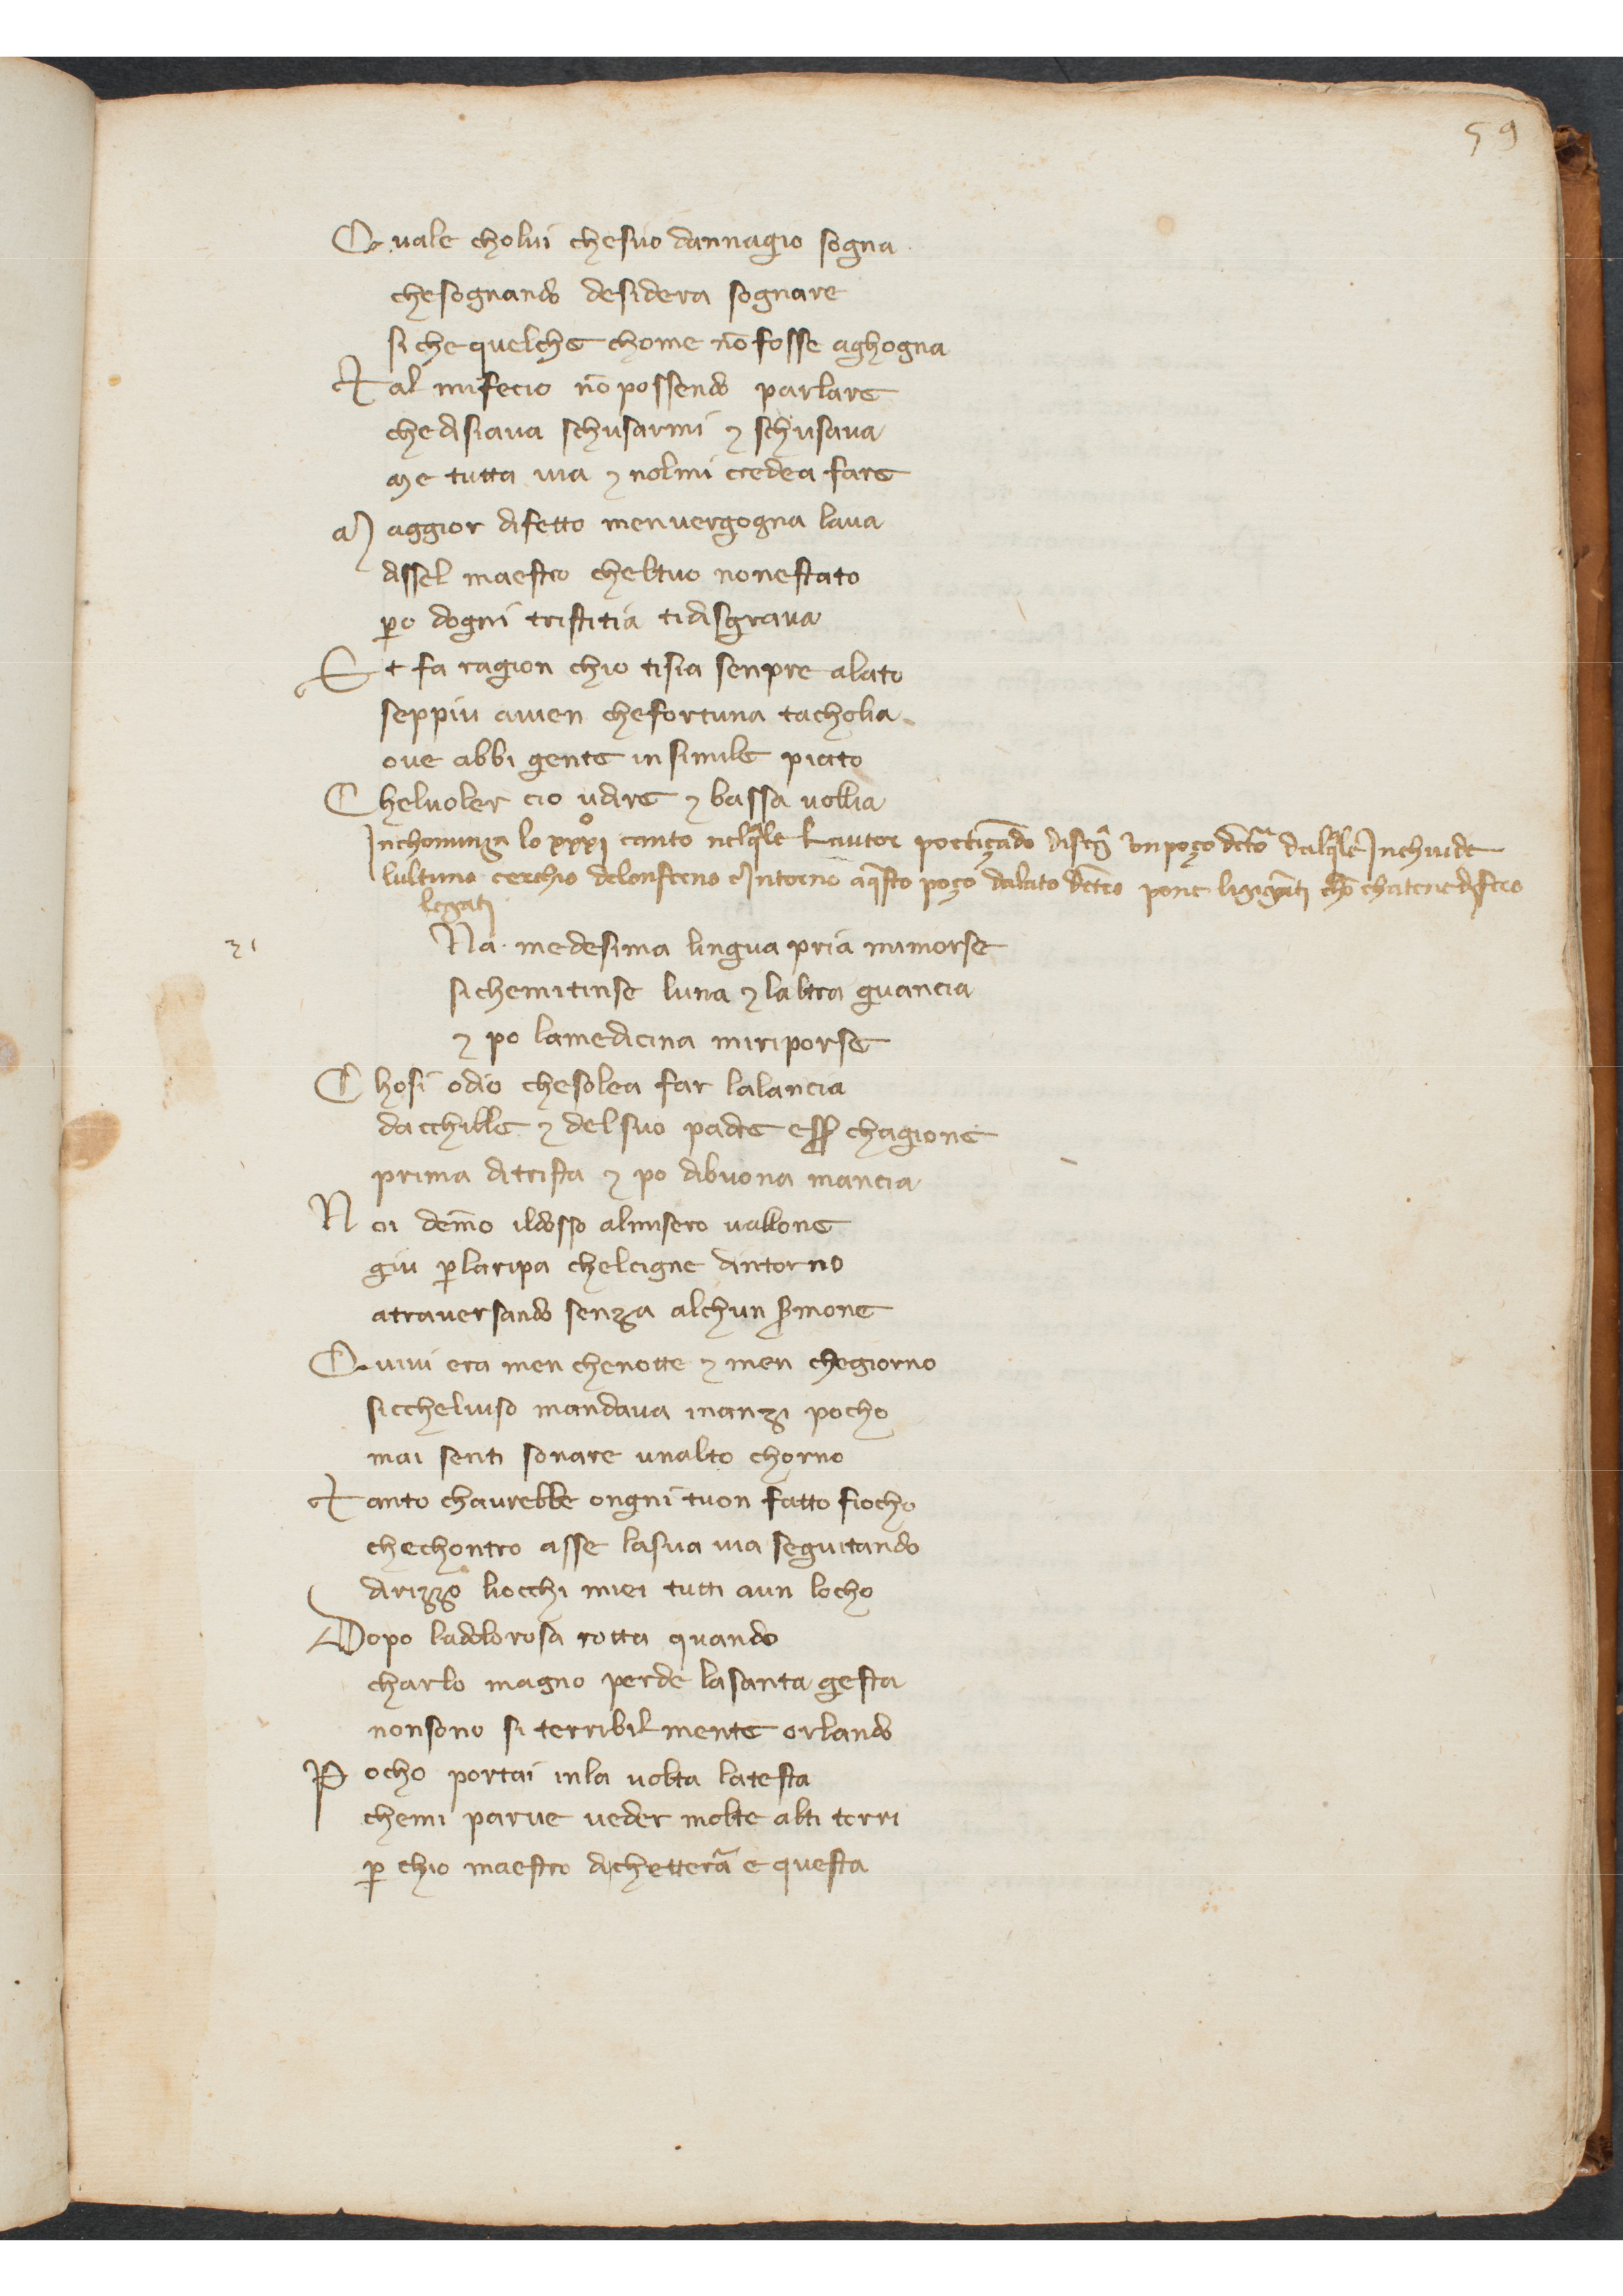 59
Quale cholui chesuo dannagio sogna
chesognando desidera sognare
si che quelche chome nō fosse aghogna
Tal mifecio nō possendo parlare
che disiaua schusarmi ⁊ schusaua
me tutta uia ⁊ nolmi credea fare
Maggior difetto men uergogna laua
dissel maestro cheltuo nonestato
pͦo dogni tristitia tidisgraua
Et fa ragion chio tisia senpre alato
seppiu auien chefortuna tacholia
oue abbi gente in simile piato
Chel uoler cio udire ⁊ bassa uollia
Inchomīnza lo xxxjº canto nelq̄le lautor poetiçādo un poço dalq̄le Inchiude
lultimo cerchio delonferno Intorno aq̄sto poço dalato pone ligigāti chō chatene diferro
legati
31
Na medesima lingua pria mimorse
si chemitinse luna ⁊ laltra guancia
⁊ po lamedicina miriporse
Chosi odio chesolea far lalancia
dacchille ⁊ delsuo padre chagione
prima ditrista ⁊ po dibuona mancia
Noi demō ildosso almisero uallone
giu ꝑlaripa chelcigne dintorno
atrauersando senza alchun s̄mone
Quiui era men chenotte ⁊ men chegiorno
sicchel uiso mandaua inanzi pocho
mai senti sonare unalto chorno
Tanto chaurebbe ongni tuon fatto fiocho
chechontro asse lasua uia seguitando
dirizzo liocchi miei tutti aun locho
Dopo ladolorosa rotta quando
charlo magno perde lasanta gesta
nonsono si terribilmente orlando
Pocho portai inla uolta latesta
chemi parue ueder molte alti torri
ꝑ chio maestro dichetterā e questa